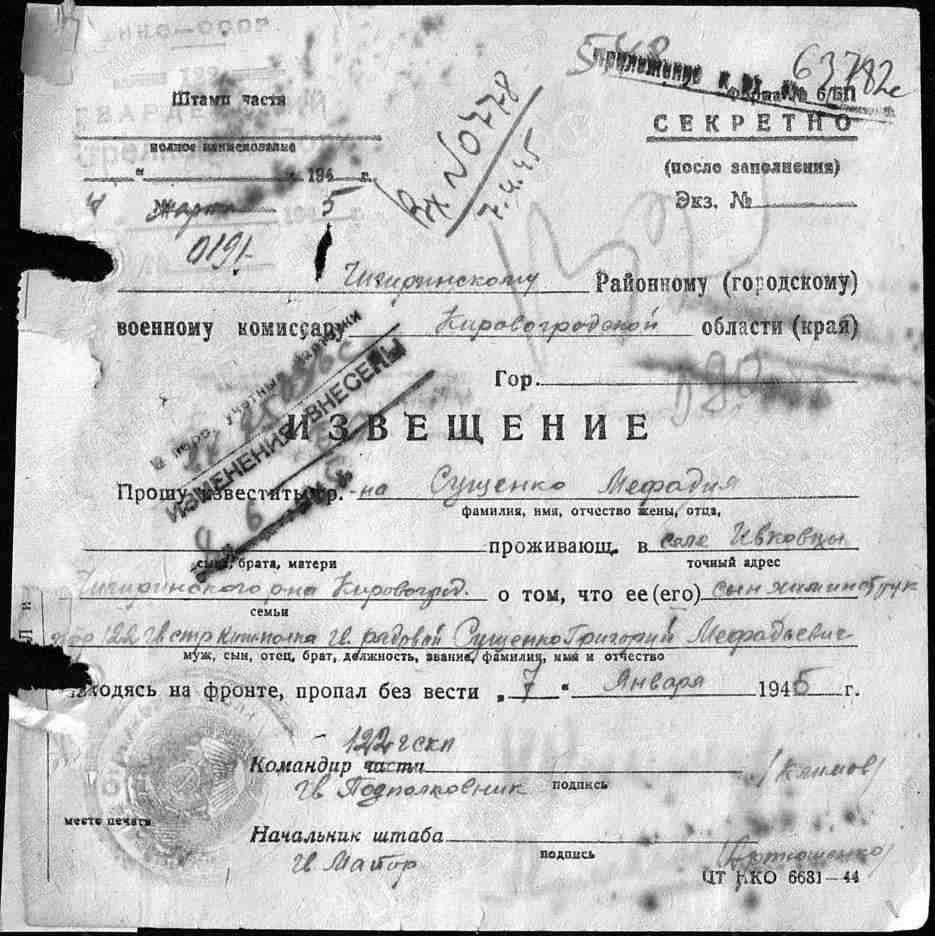 НКО–СССР
Штамп части
ГВАРДЕЙСКИЙ
полное наименование
"–" 194 г.
4 марта 1945
0191
548
Приложение к вх. №
63782с
Форма № 6/БП
СЕКРЕТНО
(после заполнения)
Экз. №
Вх N 0778
7.4.45
Чигиринскому Районному (городскому)
военному комиссару Кировоградской области (края)
Гор.
ИЗВЕЩЕНИЕ
ИЗМЕНЕНИЯ ВНЕСЕНЫ
Прошу известить гр.-на Сущенко Мефадия
фамилия, имя, отчество жены, отца,
проживающ. в селе Ивковцы
сына, брата, матери точный адрес
Чигиринского рна Кировоград. о том, что ее (его) сын химинструк
семьи
тор 122 Гв стр Киш полка гв. рядовой Сущенко Григорий Мефадьевич
муж, сын, отец, брат, должность, звание, фамилия, имя и отчество
находясь на фронте, пропал без вести „7" Января 1945 г.
122 гскп
Командир части (Климов)
Гв Подполковник подпись
место печати
Начальник штаба
Гв Майор подпись
ЦТ НКО 6631–44